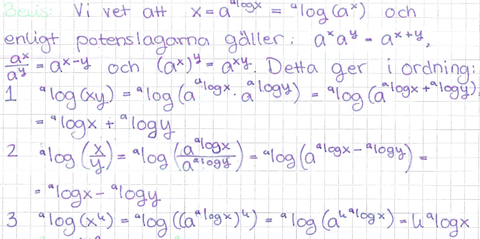 Bevis: Vi vet att x = a^(ᵃlogx) = ᵃlog(aˣ) och
enligt potenslagarna gäller: aˣaʸ = aˣ⁺ʸ,
aˣ/aʸ = aˣ⁻ʸ och (aˣ)ʸ = aˣʸ. Detta ger i ordning:
1 ᵃlog(xy) = ᵃlog(a^(ᵃlogx) · a^(ᵃlogy)) = ᵃlog(a^(ᵃlogx + ᵃlogy))
= ᵃlogx + ᵃlogy
2 ᵃlog(x/y) = ᵃlog(a^(ᵃlogx)/a^(ᵃlogy)) = ᵃlog(a^(ᵃlogx - ᵃlogy)) =
= ᵃlogx - ᵃlogy
3 ᵃlog(xᵏ) = ᵃlog((a^(ᵃlogx))ᵏ) = ᵃlog(a^(k ᵃlogx)) = k ᵃlogx